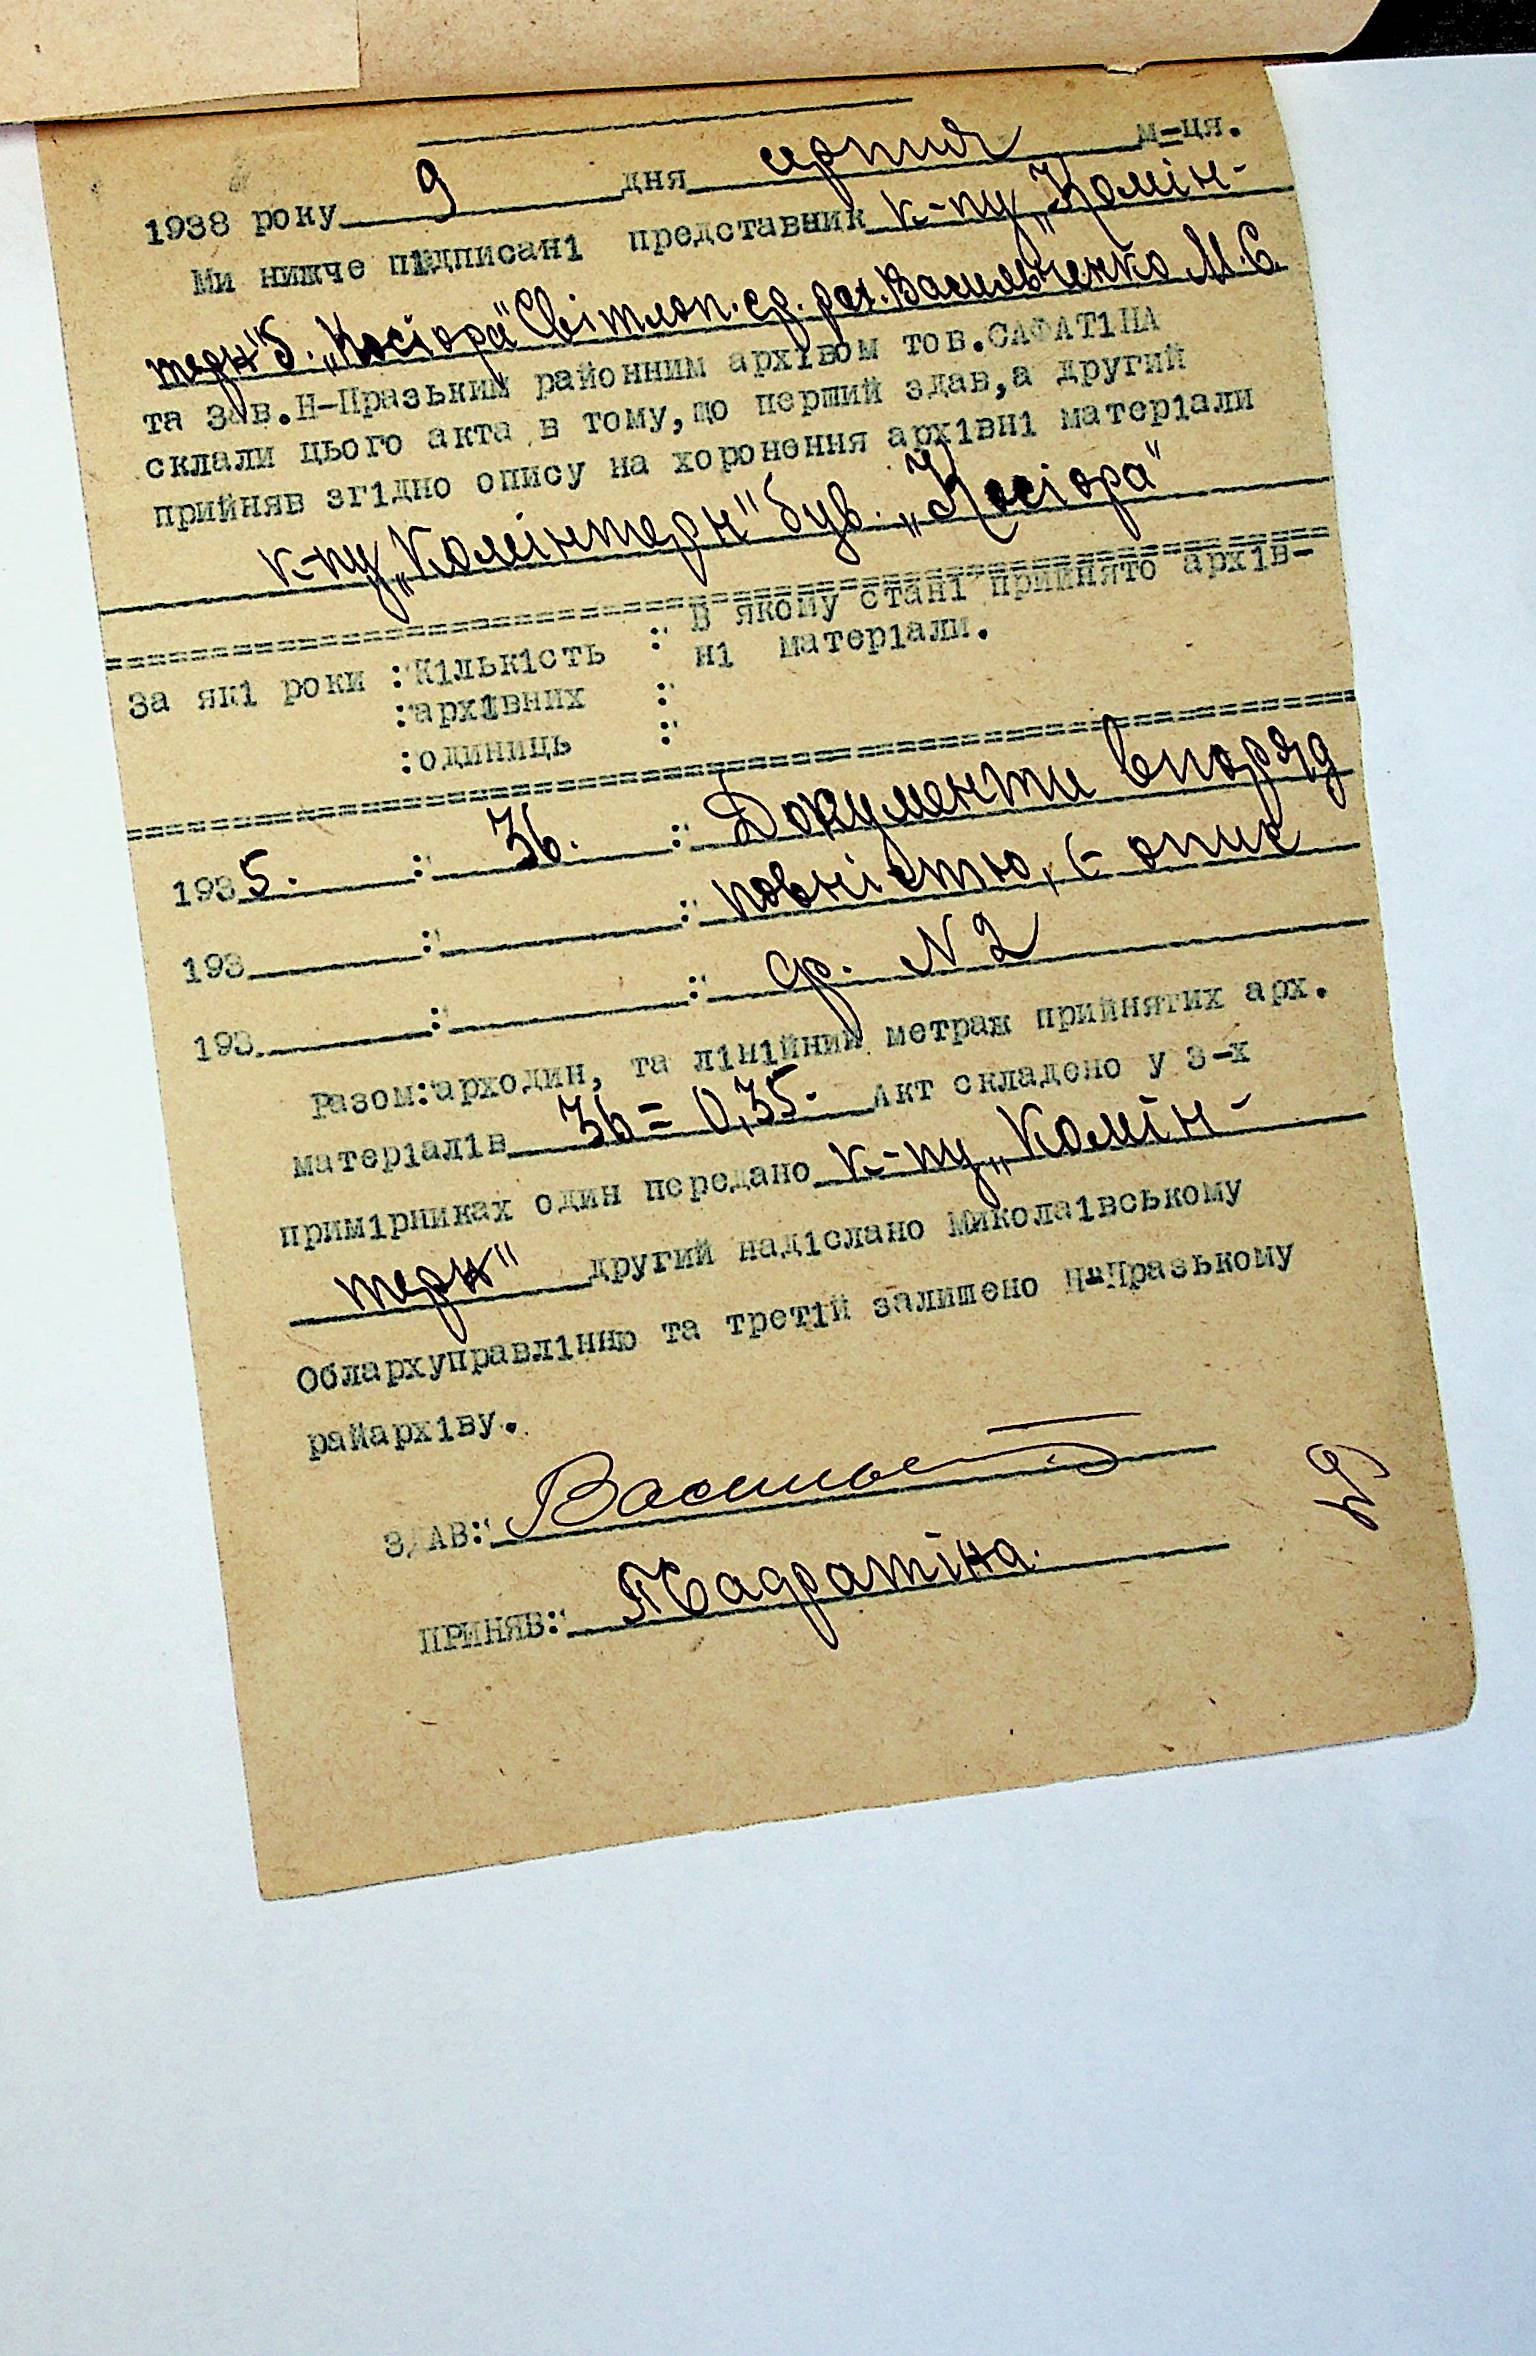 1938 року 9 дня серпня м-ця.
Ми нижче підписані представник к-пу „Комін-
терн" б. „Косіора" Світлоп. с/р. рах. Васильченко М.С.
та зав. Н-Празьким районним архівом тов. САФАТІНА
склали цього акта в тому, що перший здав, а другий
прийняв згідно опису на хоронення архівні матеріали
к-пу „Комінтерн" був. „Косіора"
За які роки : Кількість : В якому стані прийнято архів-
: архівних : ні матеріали.
: одиниць :
1935. : 36. : Документи впоряд
193 : : повністю, є опис
193 : : ф. N 2
Разом: арходин, та лінійний метраж прийнятих арх.
матеріалів 36 = 0,35. Акт складено у 3-х
примірниках один передано к-пу „Комін-
терн" другий надіслано Миколаівському
Облархуправлінню та третій залишено Н-Празькому
райархіву.
ЗДАВ:
ПРИНЯВ: